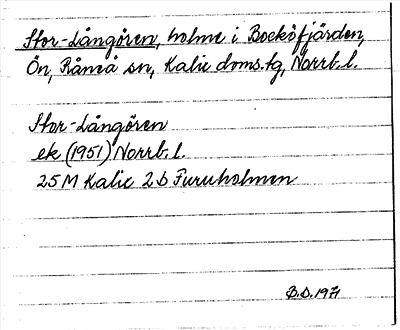 Stor-Långören, holme i Bocköfjärden,
Ön, Råneå sn, Kalix doms.tg, Norrb.l.
Stor-Långören
ek (1951) Norrb.l.
25M Kalix 2b Furuholmen
B.D. 1971